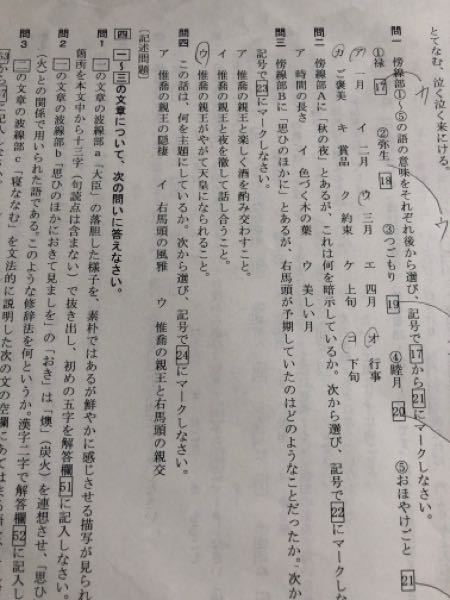 とてなむ、泣く泣く来にける。
問一 傍線部①～⑤の語の意味をそれぞれ後から選び、記号で17から21にマークしなさい。
①禄 17 ②弥生 18 ③つごもり 19 ④睦月 20 ⑤おほやけごと 21
ア 一月 イ 二月 ウ 三月 エ 四月 オ 行事
カ ご褒美 キ 賞品 ク 約束 ケ 上旬 コ 下旬
問二 傍線部Aに「秋の夜」とあるが、これは何を暗示しているか。次から選び、記号で22にマークしな
ア 時間の長さ イ 色づく木の葉 ウ 美しい月
問三 傍線部Bに「思ひのほかに」とあるが、右馬頭が予期していたのはどのようなことだったか。次か
記号で23にマークしなさい。
ア 惟喬の親王と楽しく酒を酌み交わすこと。
イ 惟喬の親王と夜を徹して話し合うこと。
ウ 惟喬の親王がやがて天皇になられること。
問四 この話は、何を主題にしているか。次から選び、記号で24にマークしなさい。
ア 惟喬の親王の隠棲 イ 右馬頭の風雅 ウ 惟喬の親王と右馬頭の親交
〔記述問題〕
四 一～三の文章について、次の問いに答えなさい。
問1 一の文章の波線部a「大臣」の落胆した様子を、素朴ではあるが鮮やかに感じさせる描写が見られ
箇所を本文中から十三字（句読点は含まない）で抜き出し、初めの五字を解答欄51に記入しなさい。
問2 二の文章の波線部b「思ひのほかにおきて見ましを」の「おき」は「燠」（炭火）を連想させ、「思ひ
（火）との関係で用いられた語である。このような修辞法を何というか。漢字二字で解答欄52に記入し
問3 二の文章の波線部c「寝ななむ」を文法的に説明した次の文の空欄にあてはまる